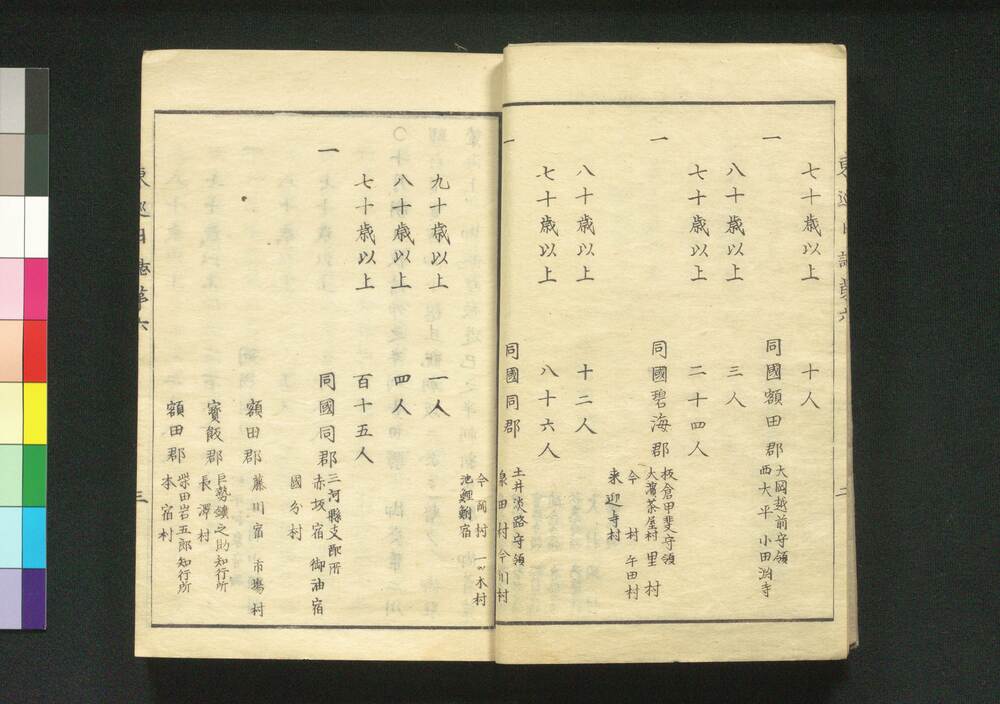 七十歳以上 十人
一 同國額田郡 大岡越前守領
西大平 小田渕寺
八十歳以上 三人
七十歳以上 二十四人
一 同國碧海郡 板倉甲斐守領
大濱茶屋村 里村
今村 牛田村
来迎寺村
八十歳以上 十二人
七十歳以上 八十六人
一 同國同郡 土井淡路守領
泉田村 今川村
今岡村 一ツ木村
池鯉鮒宿
九十歳以上 一人
八十歳以上 四人
七十歳以上 百十五人
一 同國同郡 三河縣支配所
赤坂宿 御油宿
國分村
額田郡 藤川宿 市塲村
寳飯郡 巨勢鐮之助知行所
長澤村
額田郡 柴田岩五郎知行所
本宿村
東巡日誌第六 三
東巡日誌第六